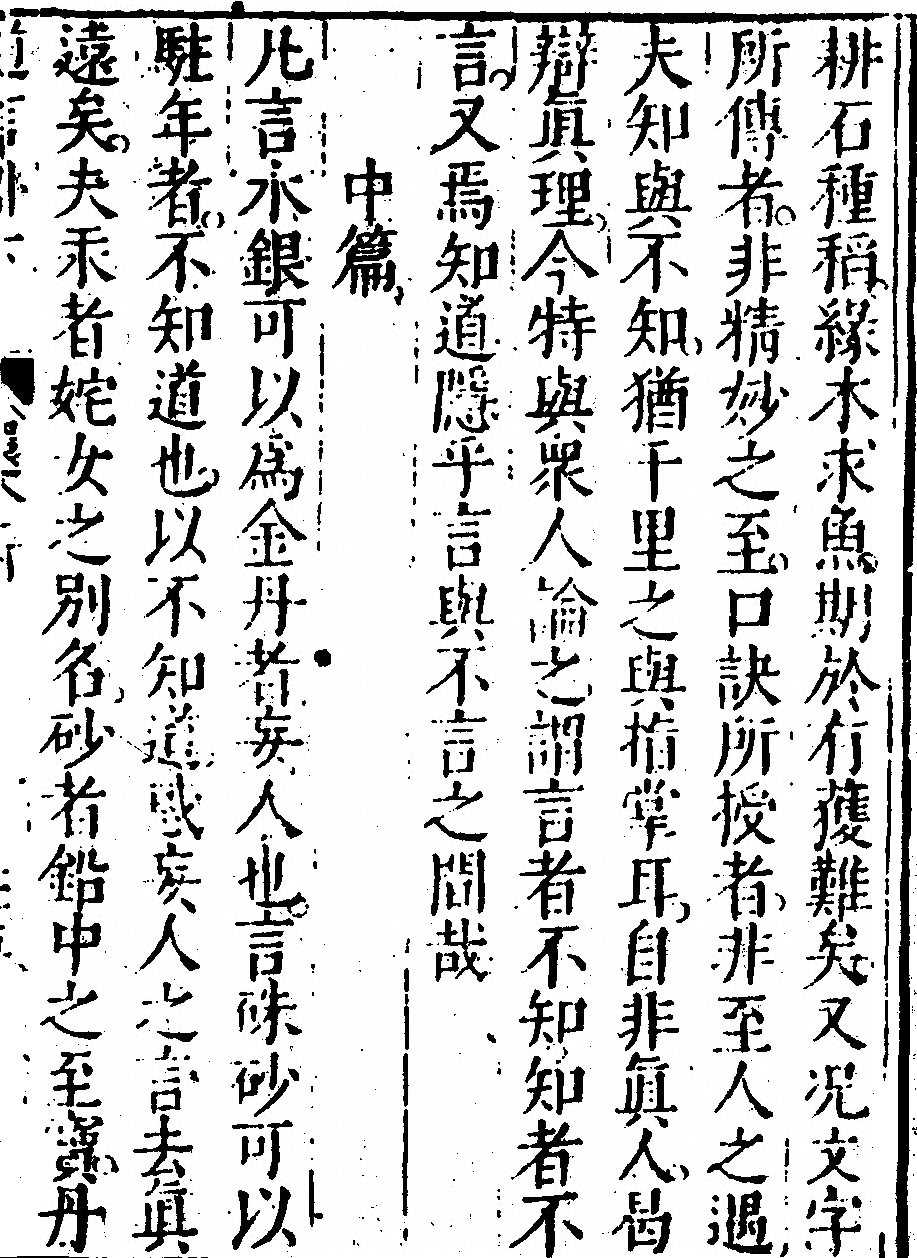 耕石種稻緣木求魚期於有獲難矣又況文字
所傳者非精妙之至口訣所授者非至人之遇
夫知與不知猶千里之與指掌耳自非眞人曷
辯眞理今特與衆人論之謂言者不知知者不
言又焉知道隱乎言與不言之間哉
中篇
凡言水銀可以爲金丹者妄人也言硃砂可以
駐年者不知道也以不知道惑妄人之言去眞
遠矣夫汞者姹女之別名砂者鉛中之至靈丹